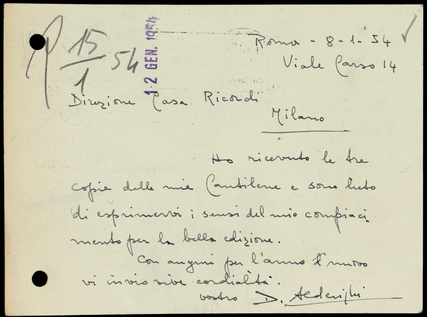 Roma - 8-1-'54
Viale Carso 14
R 15/1 54
12 GEN. 1954
Direzione Casa Ricordi
Milano
Ho ricevuto le tre
copie delle mie Cantilene e sono lieto
di esprimervi i sensi del mio compiaci
mento per la bella edizione.
Con auguri per l'anno nuovo
vi invio vive cordialità.
vostro D. Alderighi